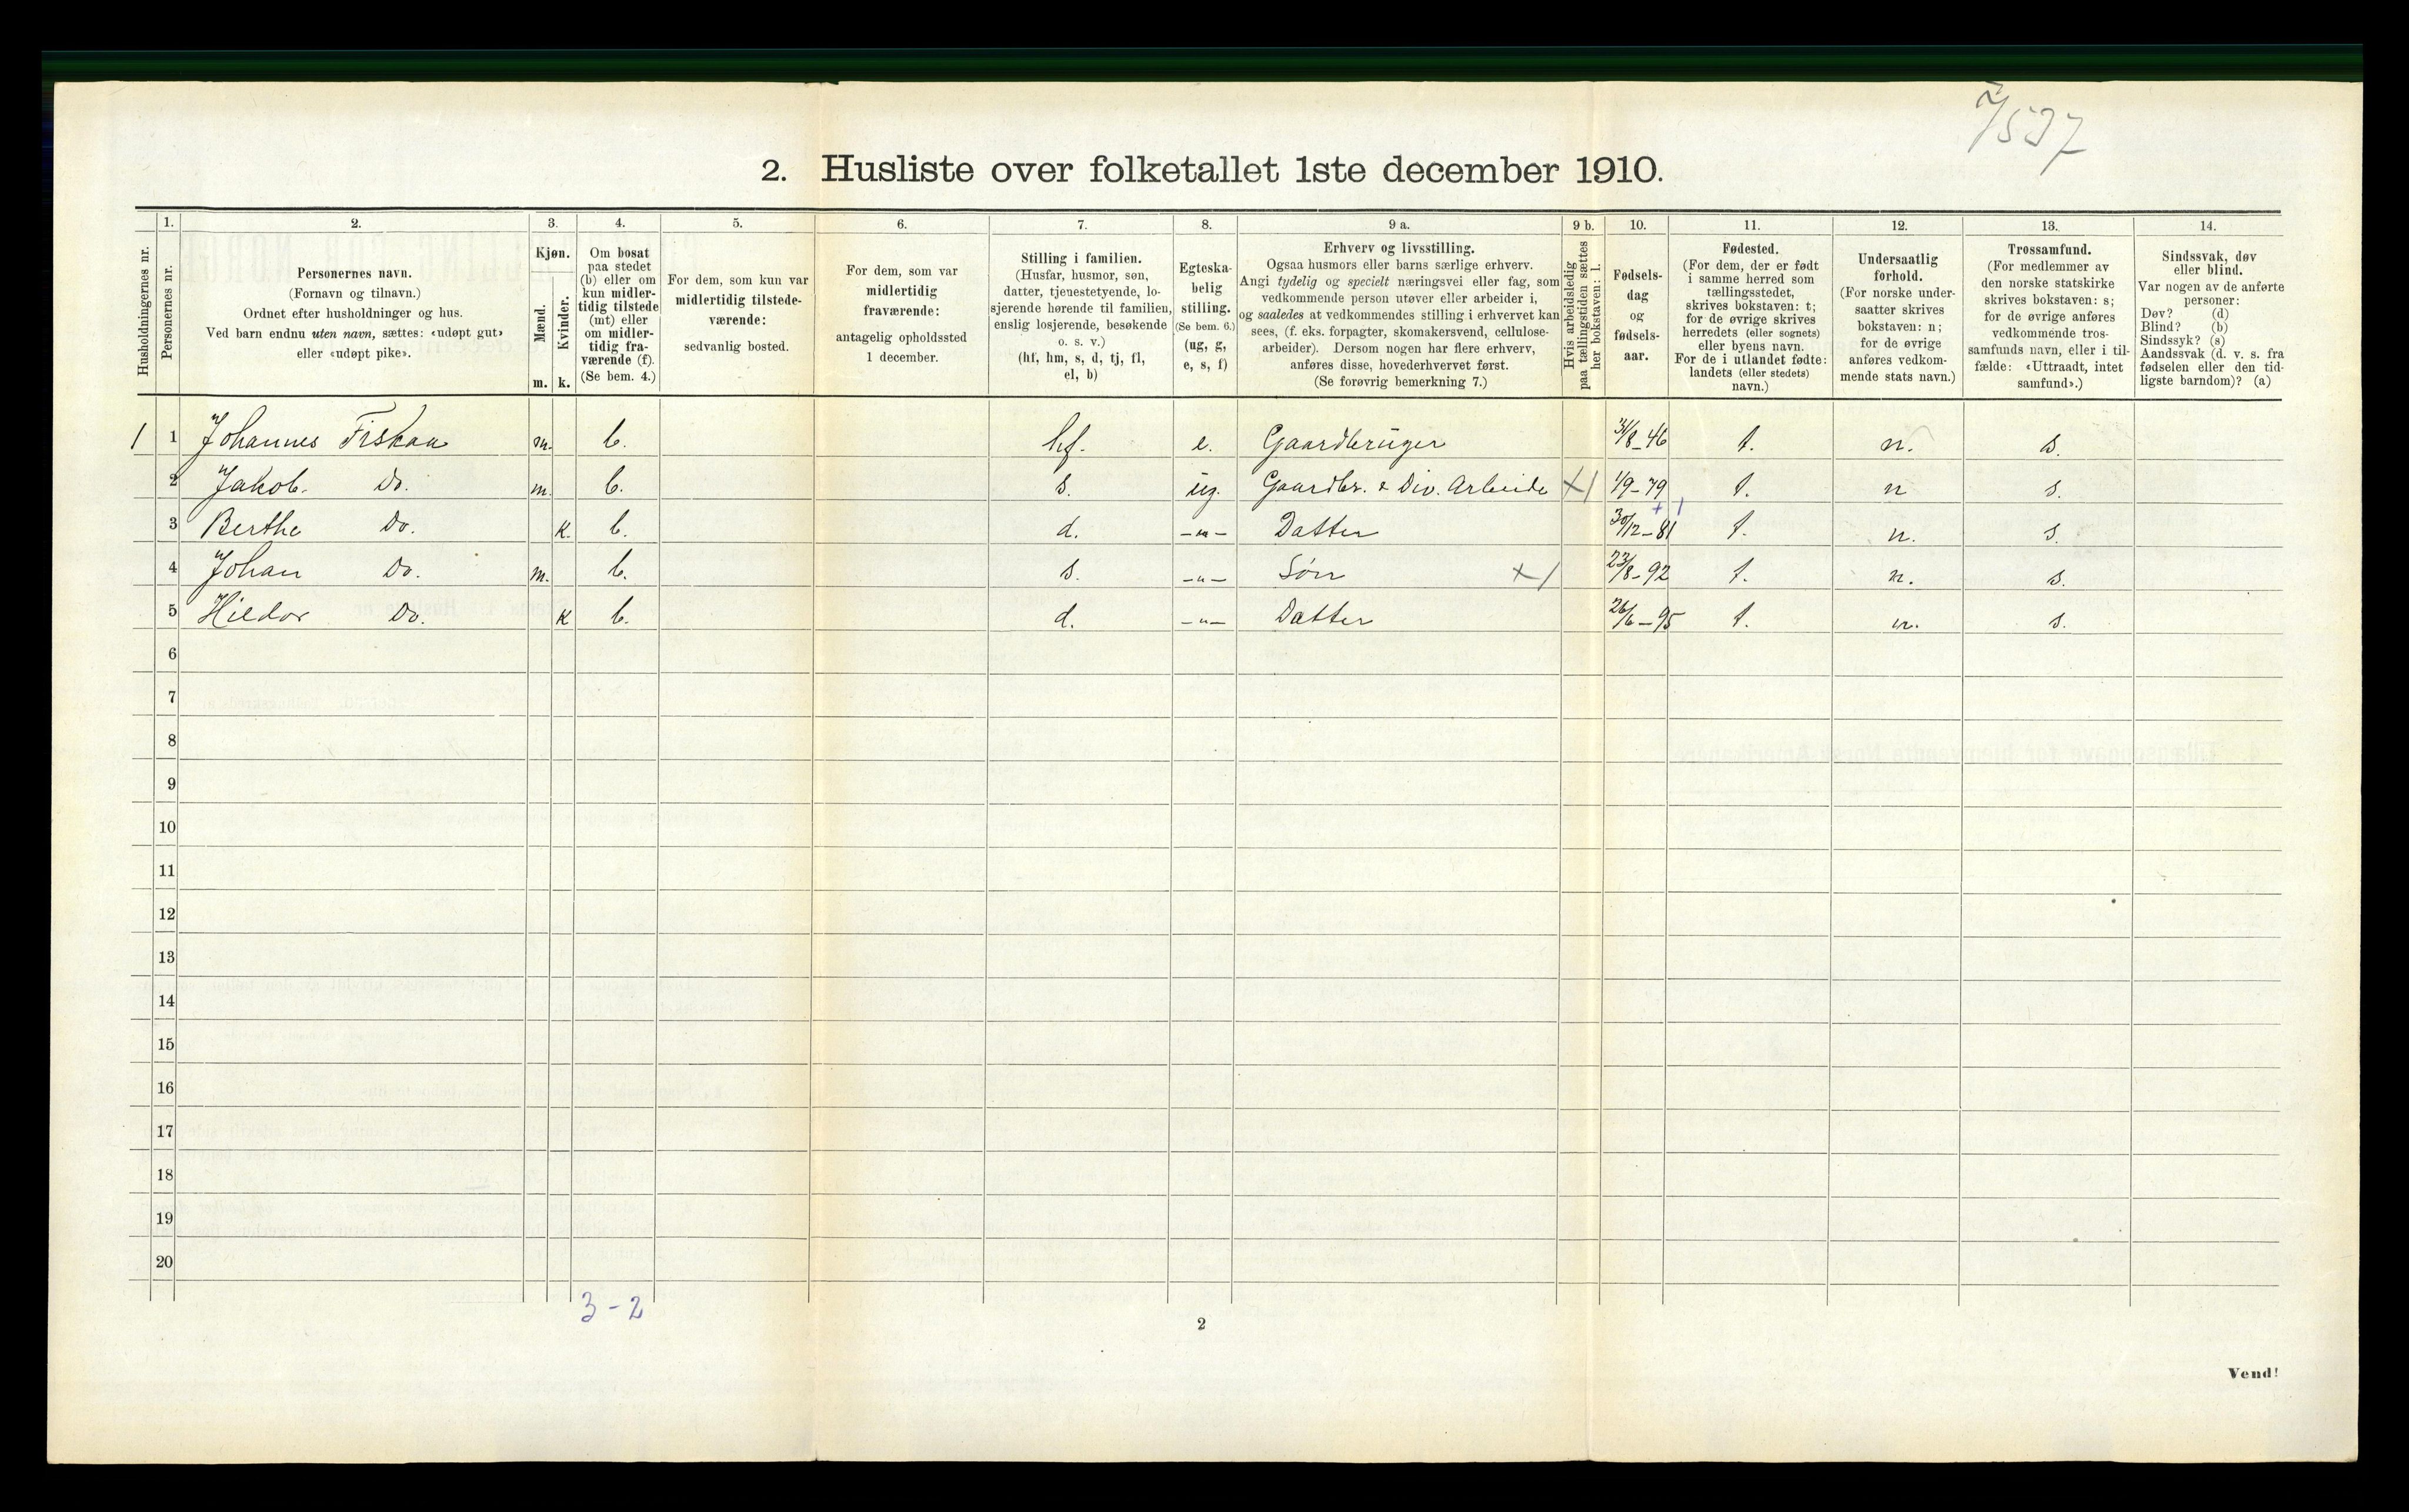 7/537
2. Husliste over folketallet 1ste december 1910.
Husholdningernes nr.
1.
Personernes nr.
2.
Personernes navn.
(Fornavn og tilnavn.)
Ordnet efter husholdninger og hus.
Ved barn endnu uten navn, sættes: «udøpt gut»
eller «udøpt pike».
3.
Kjøn.
Mænd.
Kvinder.
m. k.
4.
Om bosat
paa stedet
(b) eller om
kun midler-
tidig tilstede
(mt) eller
om midler-
tidig fra-
værende (f).
(Se bem. 4.)
5.
For dem, som kun var
midlertidig tilstede-
værende:
sedvanlig bosted.
6.
For dem, som var
midlertidig
fraværende:
antagelig opholdssted
1 december.
7.
Stilling i familien.
(Husfar, husmor, søn,
datter, tjenestetyende, lo-
sjerende hørende til familien,
enslig losjerende, besøkende
o. s. v.)
(hf, hm, s, d, tj, fl,
el, b)
8.
Egteska-
belig
stilling.
(Se bem. 6.)
(ug, g,
e, s, f)
9 a.
Erhverv og livsstilling.
Ogsaa husmors eller barns særlige erhverv.
Angi tydelig og specielt næringsvei eller fag, som
vedkommende person utøver eller arbeider i,
og saaledes at vedkommendes stilling i erhvervet kan
sees, (f. eks. forpagter, skomakersvend, cellulose-
arbeider). Dersom nogen har flere erhverv,
anføres disse, hovederhvervet først.
(Se forøvrig bemerkning 7.)
9 b.
Hvis arbeidsledig
paa tællingstiden sættes
her bokstaven: l.
10.
Fødsels-
dag
og
fødsels-
aar.
11.
Fødested.
(For dem, der er født
i samme herred som
tællingsstedet,
skrives bokstaven: t;
for de øvrige skrives
herredets (eller sognets)
eller byens navn.
For de i utlandet fødte:
landets (eller stedets)
navn.)
12.
Undersaatlig
forhold.
(For norske under-
saatter skrives
bokstaven: n;
for de øvrige
anføres vedkom-
mende stats navn.)
13.
Trossamfund.
(For medlemmer av
den norske statskirke
skrives bokstaven: s;
for de øvrige anføres
vedkommende tros-
samfunds navn, eller i til-
fælde: «Uttraadt, intet
samfund».)
14.
Sindssvak, døv
eller blind.
Var nogen av de anførte
personer:
Døv? (d)
Blind? (b)
Sindssyk? (s)
Aandssvak (d. v. s. fra
fødselen eller den tid-
ligste barndom)? (a)
1 1 Johannes Fiskaa m. b. hf. e. Gaardbruger 31/8-46 t. n. s.
2 Jakob. Do. m. b. s. ug. Gaardbr. & Div. Arbeide X1 1/9-79 t. n s.
3 Berthe Do. k. b. d. -"- Datter 30/12-81 t. n. s.
4 Johan Do. m. b. s. -"- Søn X1 23/8-92 t. n. s.
5 Hildor Do. k b. d. -"- Datter 26/6-95 t. n. s.
6
7
8
9
10
11
12
13
14
15
16
17
18
19
20
3-2
2
Vend!